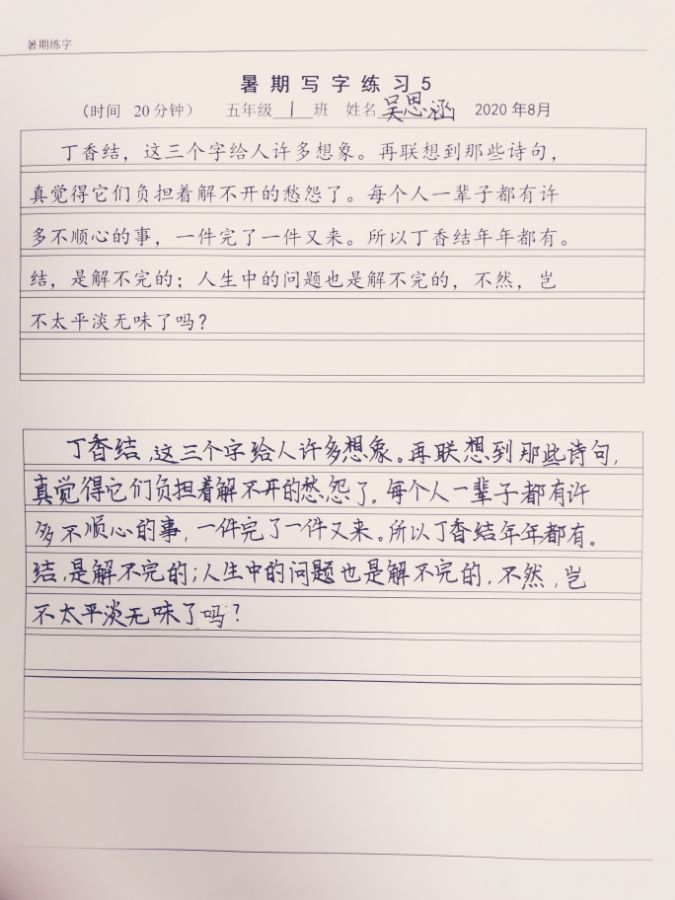 暑期练字
暑期写字练习5
（时间 20分钟） 五年级 1 班 姓名 吴思涵 2020年8月
丁香结，这三个字给人许多想象。再联想到那些诗句，
真觉得它们负担着解不开的愁怨了。每个人一辈子都有许
多不顺心的事，一件完了一件又来。所以丁香结年年都有。
结，是解不完的；人生中的问题也是解不完的，不然，岂
不太平淡无味了吗？
丁香结，这三个字给人许多想象。再联想到那些诗句，
真觉得它们负担着解不开的愁怨了。每个人一辈子都有许
多不顺心的事，一件完了一件又来。所以丁香结年年都有。
结，是解不完的；人生中的问题也是解不完的，不然，岂
不太平淡无味了吗？